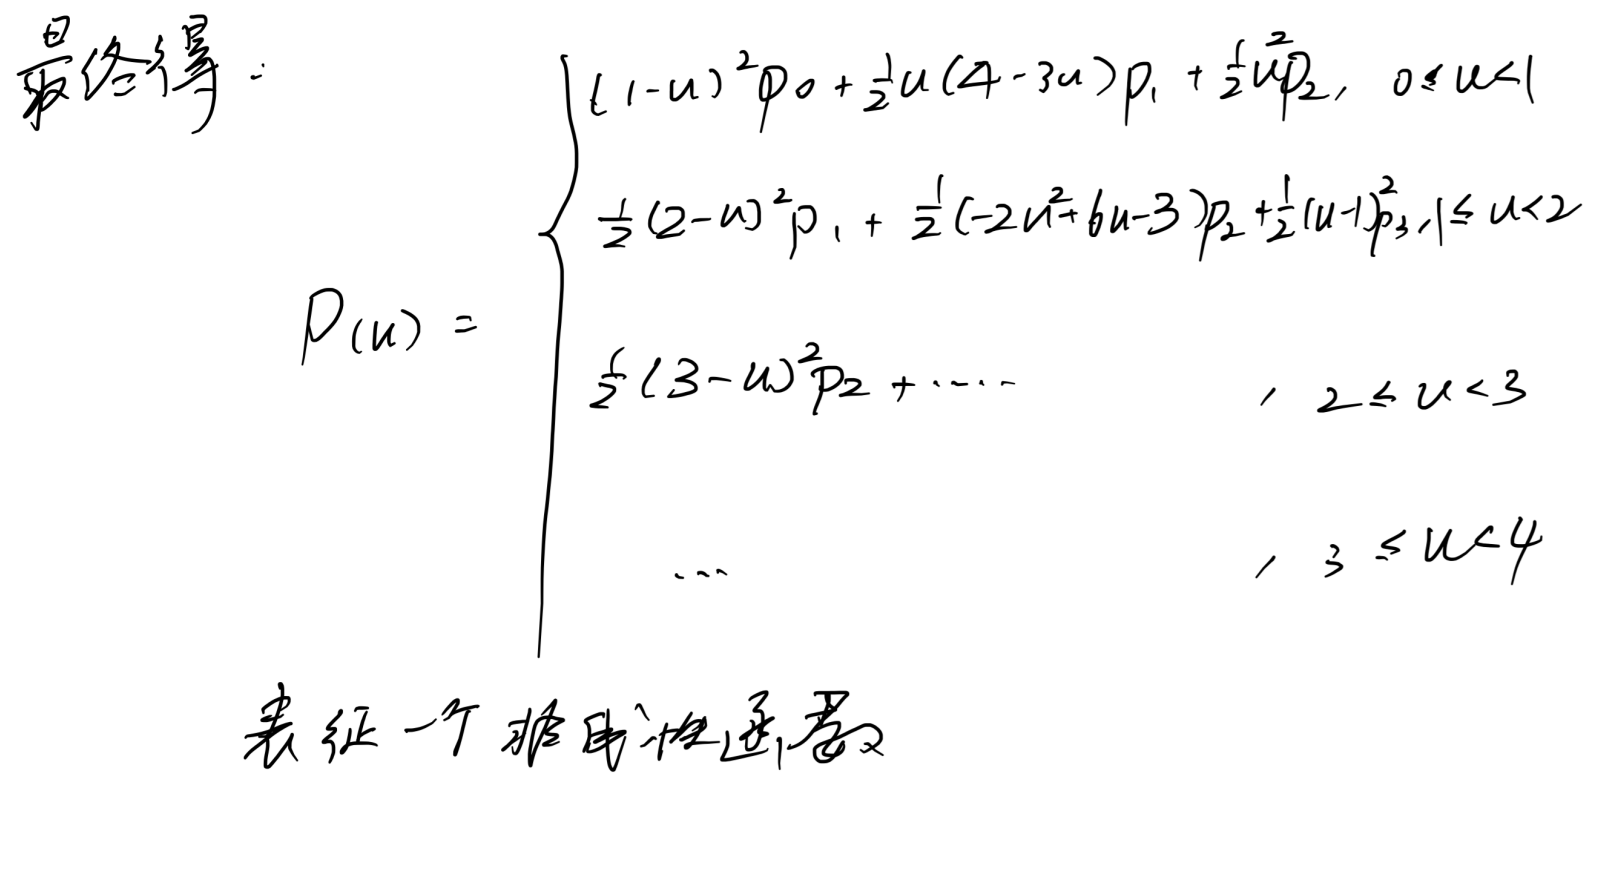 最终得：
(1-u)²p0 + ½u(4-3u)p₁ + ½u²p₂, 0≤u<1
½(2-u)²p₁ + ½(-2u²+6u-3)p₂+½(u-1)²p₃, 1≤u<2
P(u) =
½(3-u)²p2 + ·····, 2≤u<3
..., 3≤u<4
表征一个非线性函数